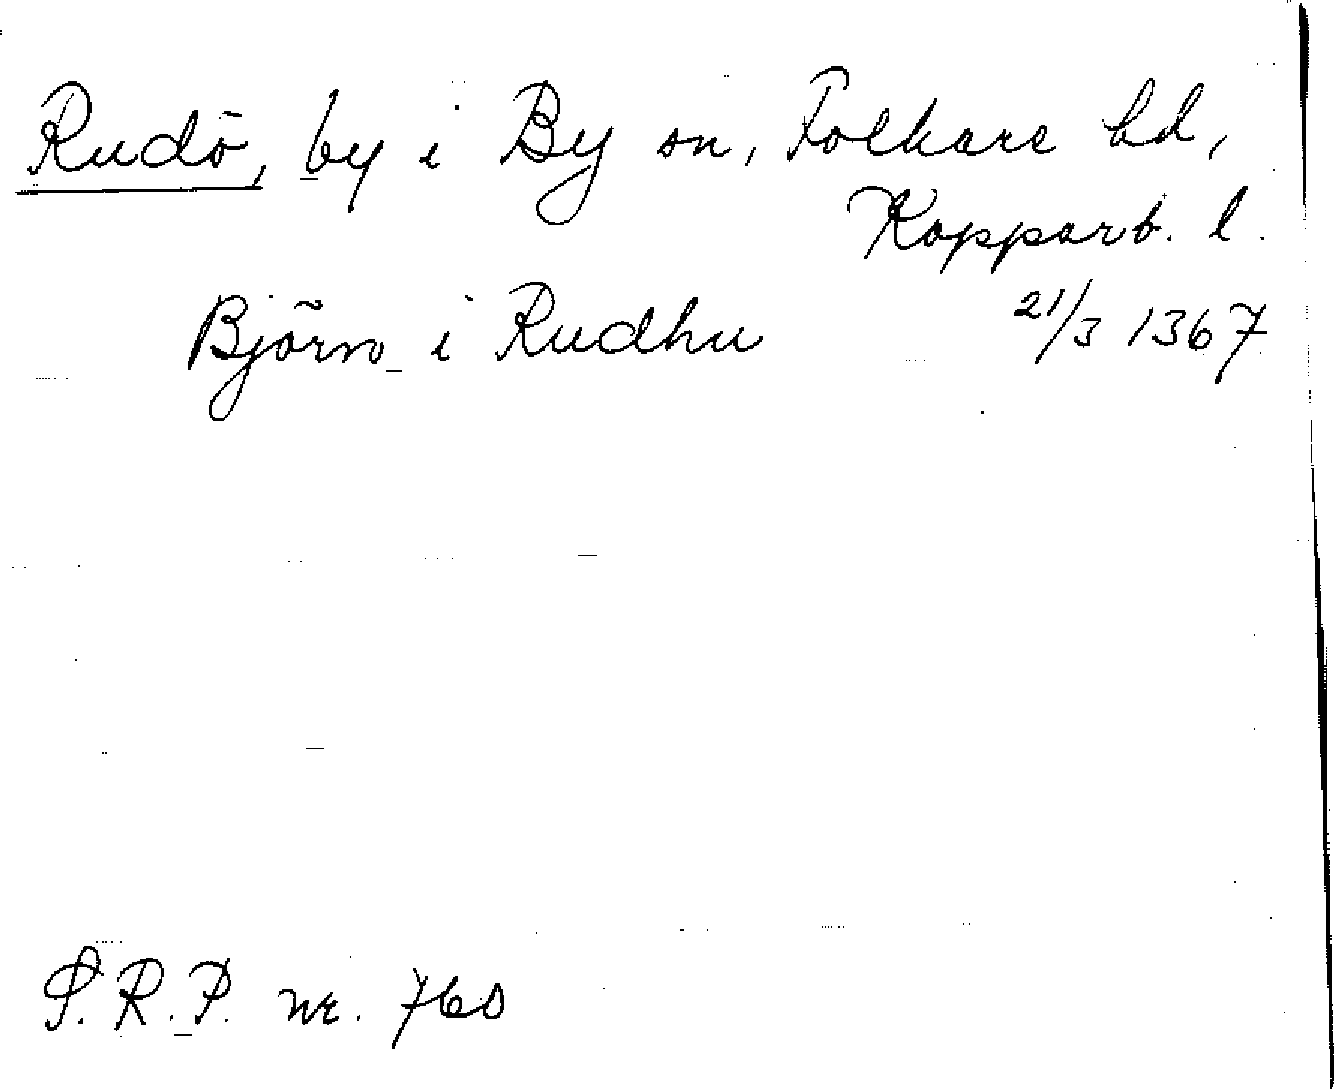 Rudö, by i By sn, Folkare hd,
Kopparb. l.
Björn i Rudhu 21/3 1367
S.R.P. nr. 760